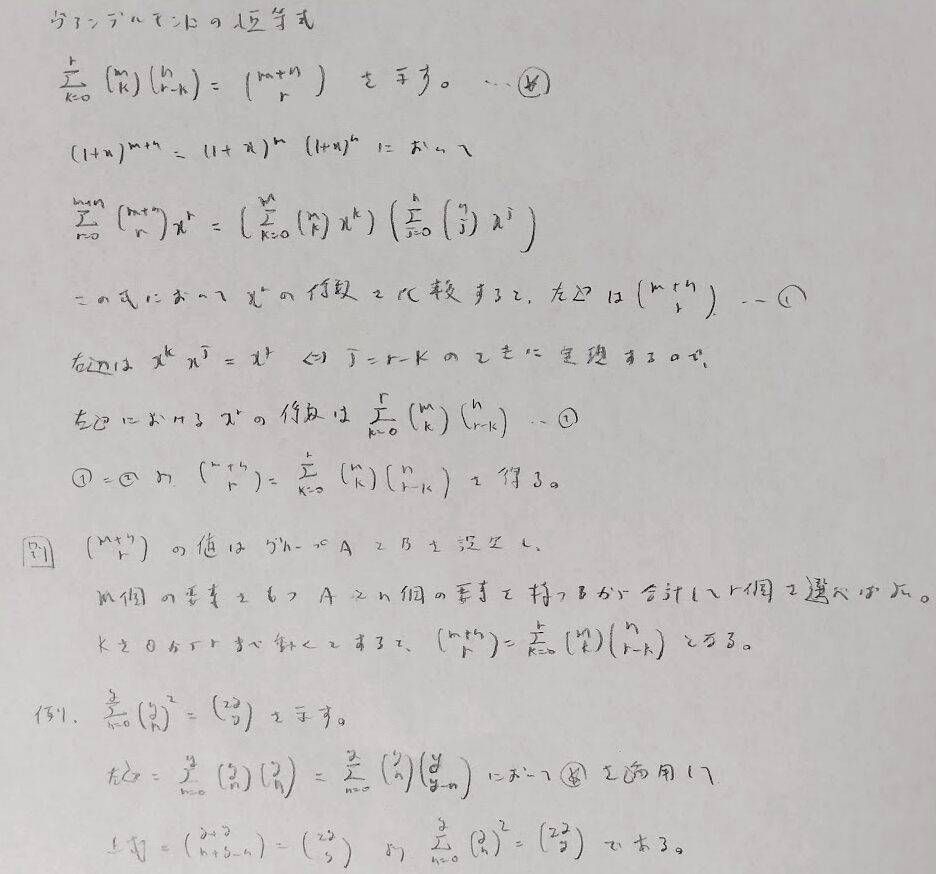 ヴァンデルモンドの恒等式
$\sum_{k=0}^{r} \binom{m}{k} \binom{n}{r-k} = \binom{m+n}{r}$ を示す。 … ⊛
$(1+x)^{m+n} = (1+x)^m (1+x)^n$ において
$\sum_{r=0}^{m+n} \binom{m+n}{r} x^r = \left( \sum_{k=0}^{m} \binom{m}{k} x^k \right) \left( \sum_{j=0}^{n} \binom{n}{j} x^j \right)$
この式において $x^r$ の係数を比較すると、左辺は $\binom{m+n}{r}$ … ①
右辺は $x^k x^j = x^r \Leftrightarrow j = r-k$ のときに実現するので、
右辺における $x^r$ の係数は $\sum_{k=0}^{r} \binom{m}{k} \binom{n}{r-k}$ … ②
①=② より $\binom{m+n}{r} = \sum_{k=0}^{r} \binom{m}{k} \binom{n}{r-k}$ を得る。
別 $\binom{m+n}{r}$ の値はグループ A と B を設定し、
m個の要素をもつ A と n個の要素を持つ B から合計して r個を選べばよい。
k を 0 から r まで動くとすると、 $\binom{m+n}{r} = \sum_{k=0}^{r} \binom{m}{k} \binom{n}{r-k}$ となる。
例1. $\sum_{n=0}^{y} \binom{y}{n}^2 = \binom{2y}{y}$ を示す。
左辺 $= \sum_{n=0}^{y} \binom{y}{n} \binom{y}{n} = \sum_{n=0}^{y} \binom{y}{n} \binom{y}{y-n}$ において ⊛ を適用して
上式 $= \binom{y+y}{n+y-n} = \binom{2y}{y}$ より $\sum_{n=0}^{y} \binom{y}{n}^2 = \binom{2y}{y}$ である。